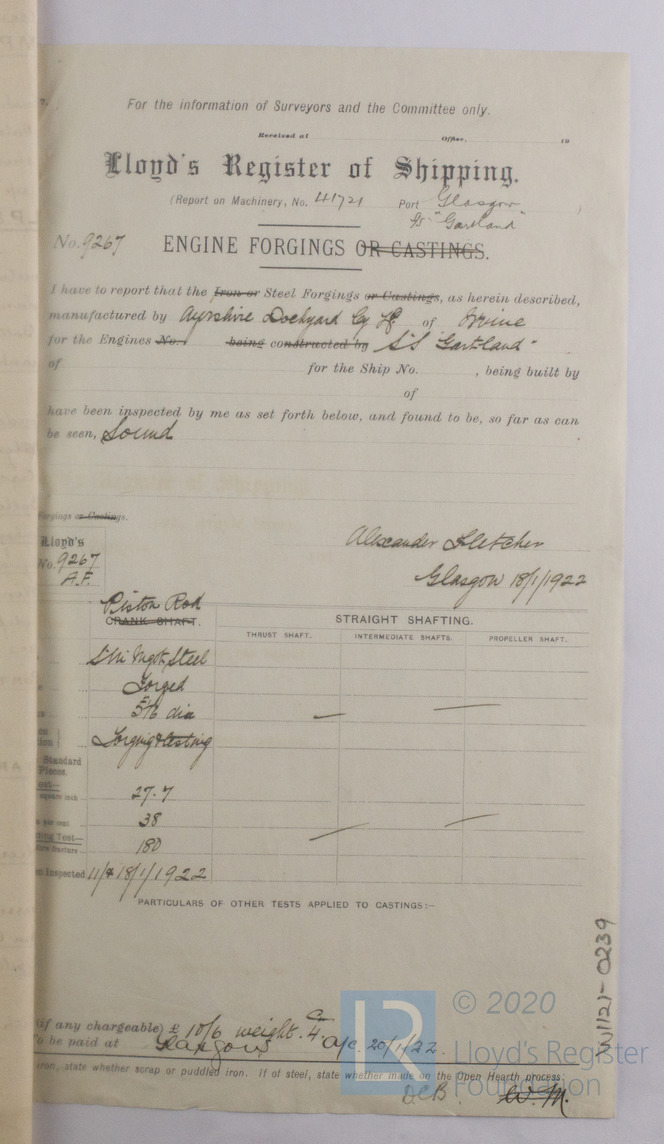 For the information of Surveyors and the Committee only.
Received at Office, 19
Lloyd's Register of Shipping.
(Report on Machinery, No. 41721 Port Glasgow )
"Gartland"
No. 9267 ENGINE FORGINGS OR CASTINGS.
I have to report that the Iron or Steel Forgings or Castings, as herein described,
manufactured by Ayrshire Dockyard Co Ld of Irvine
for the Engines No. being constructed by SS "Gartland"
of for the Ship No. , being built by
of
have been inspected by me as set forth below, and found to be, so far as can
be seen, Sound .
Forgings or Castings.
Lloyd's
No. 9267
A.F.
Alexander Fletcher
Glasgow 18/1/1922
Piston Rod
CRANK SHAFT. STRAIGHT SHAFTING.
THRUST SHAFT. INTERMEDIATE SHAFTS. PROPELLER SHAFT.
Ingot Steel
Forged
dia
Forging & testing
Standard
Pieces.
square inch 27.7
per cent 38
Test—
fracture 180
Inspected 11/& 18/1/1922
PARTICULARS OF OTHER TESTS APPLIED TO CASTINGS:—
(if any chargeable) £ 10/6 weight. 4
to be paid at Glasgow a/c. 20/1/22.
iron, state whether scrap or puddled iron. If of steel, state whether made on the Open Hearth process.
DCB W.M.
W1121-0239
LR
© 2020
Lloyd's Register
Foundation